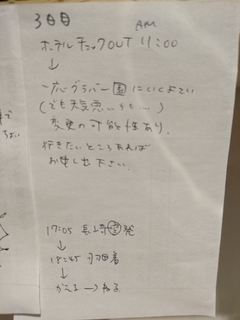 3日目
AM
ホテル チェックOUT 11:00
↓
一応グラバー園にいく予定
(でも天気悪い
変更の可能性あり、
行きたいところあれば
お申し出下さい。
17:05 長崎空発
↓
18:45 羽田着
↓
かえる → ねる